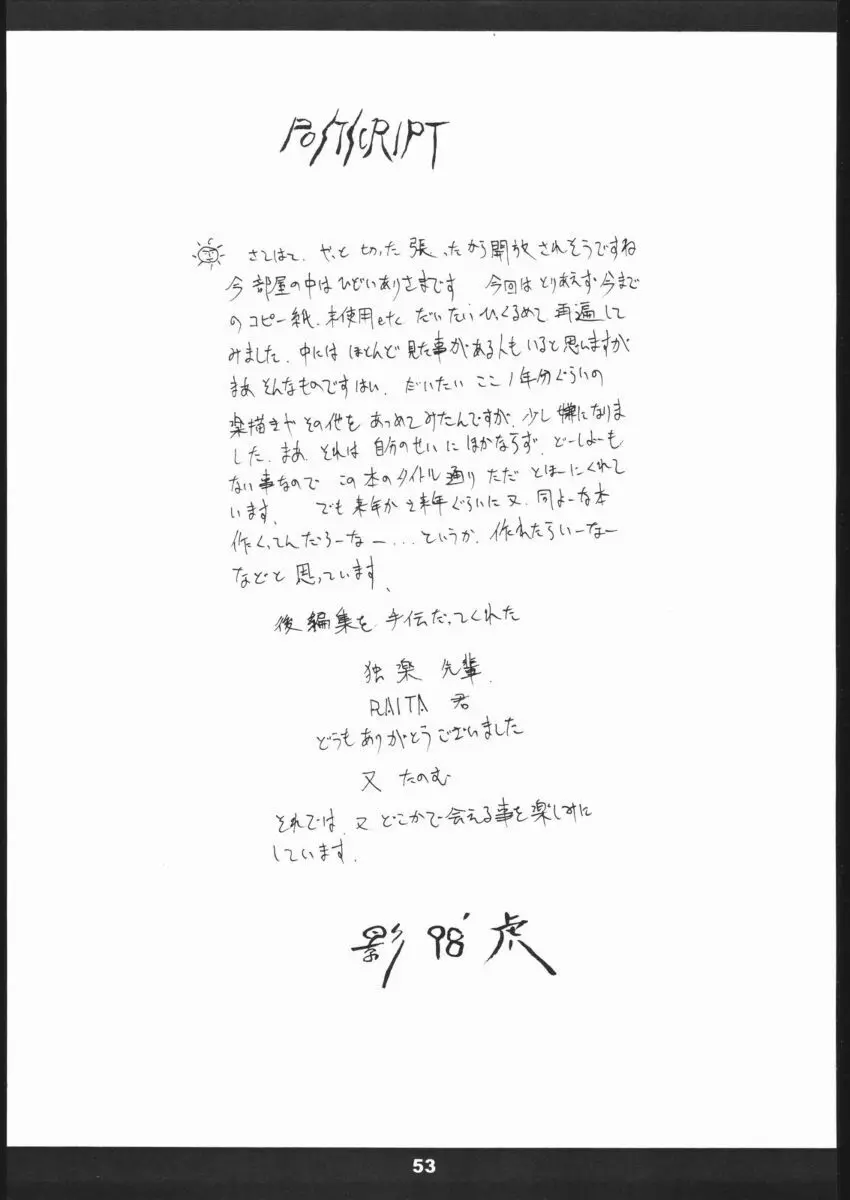 POSTSCRIPT
さてはて、やっと切った張ったから開放されそうですね
今部屋の中はひどいありさまです 今回はとりあえず今まで
のコピー紙、未使用etc だいたいひっくるめて再編して
みました、中にはほとんど見た事がある人もいると思いますが
まあそんなものですはい、だいたいここ1年分ぐらいの
楽描きやその他をあつめてみたんですが、少し嫌になりま
した、まあ それは自分のせいにほかならず、どーしよーも
ない事なので この本のタイトル通りただとほーにくれて
います、 でも来年か再来年ぐらいに又、同よーな本
作くってんだろーなー...というか、作れたらいーなー
などと思っています、
後編集を手伝だってくれた
独楽 先輩、
RAITA 君
どうもありがとうございました
又 たのむ
それでは、又どこかで会える事を楽しみに
しています、
影 98' 虎
53